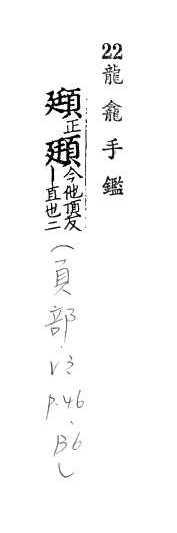 22 龍龕手鑑
頲正頲今他頂反｜直也二(頁部.V3 p.46.B6)